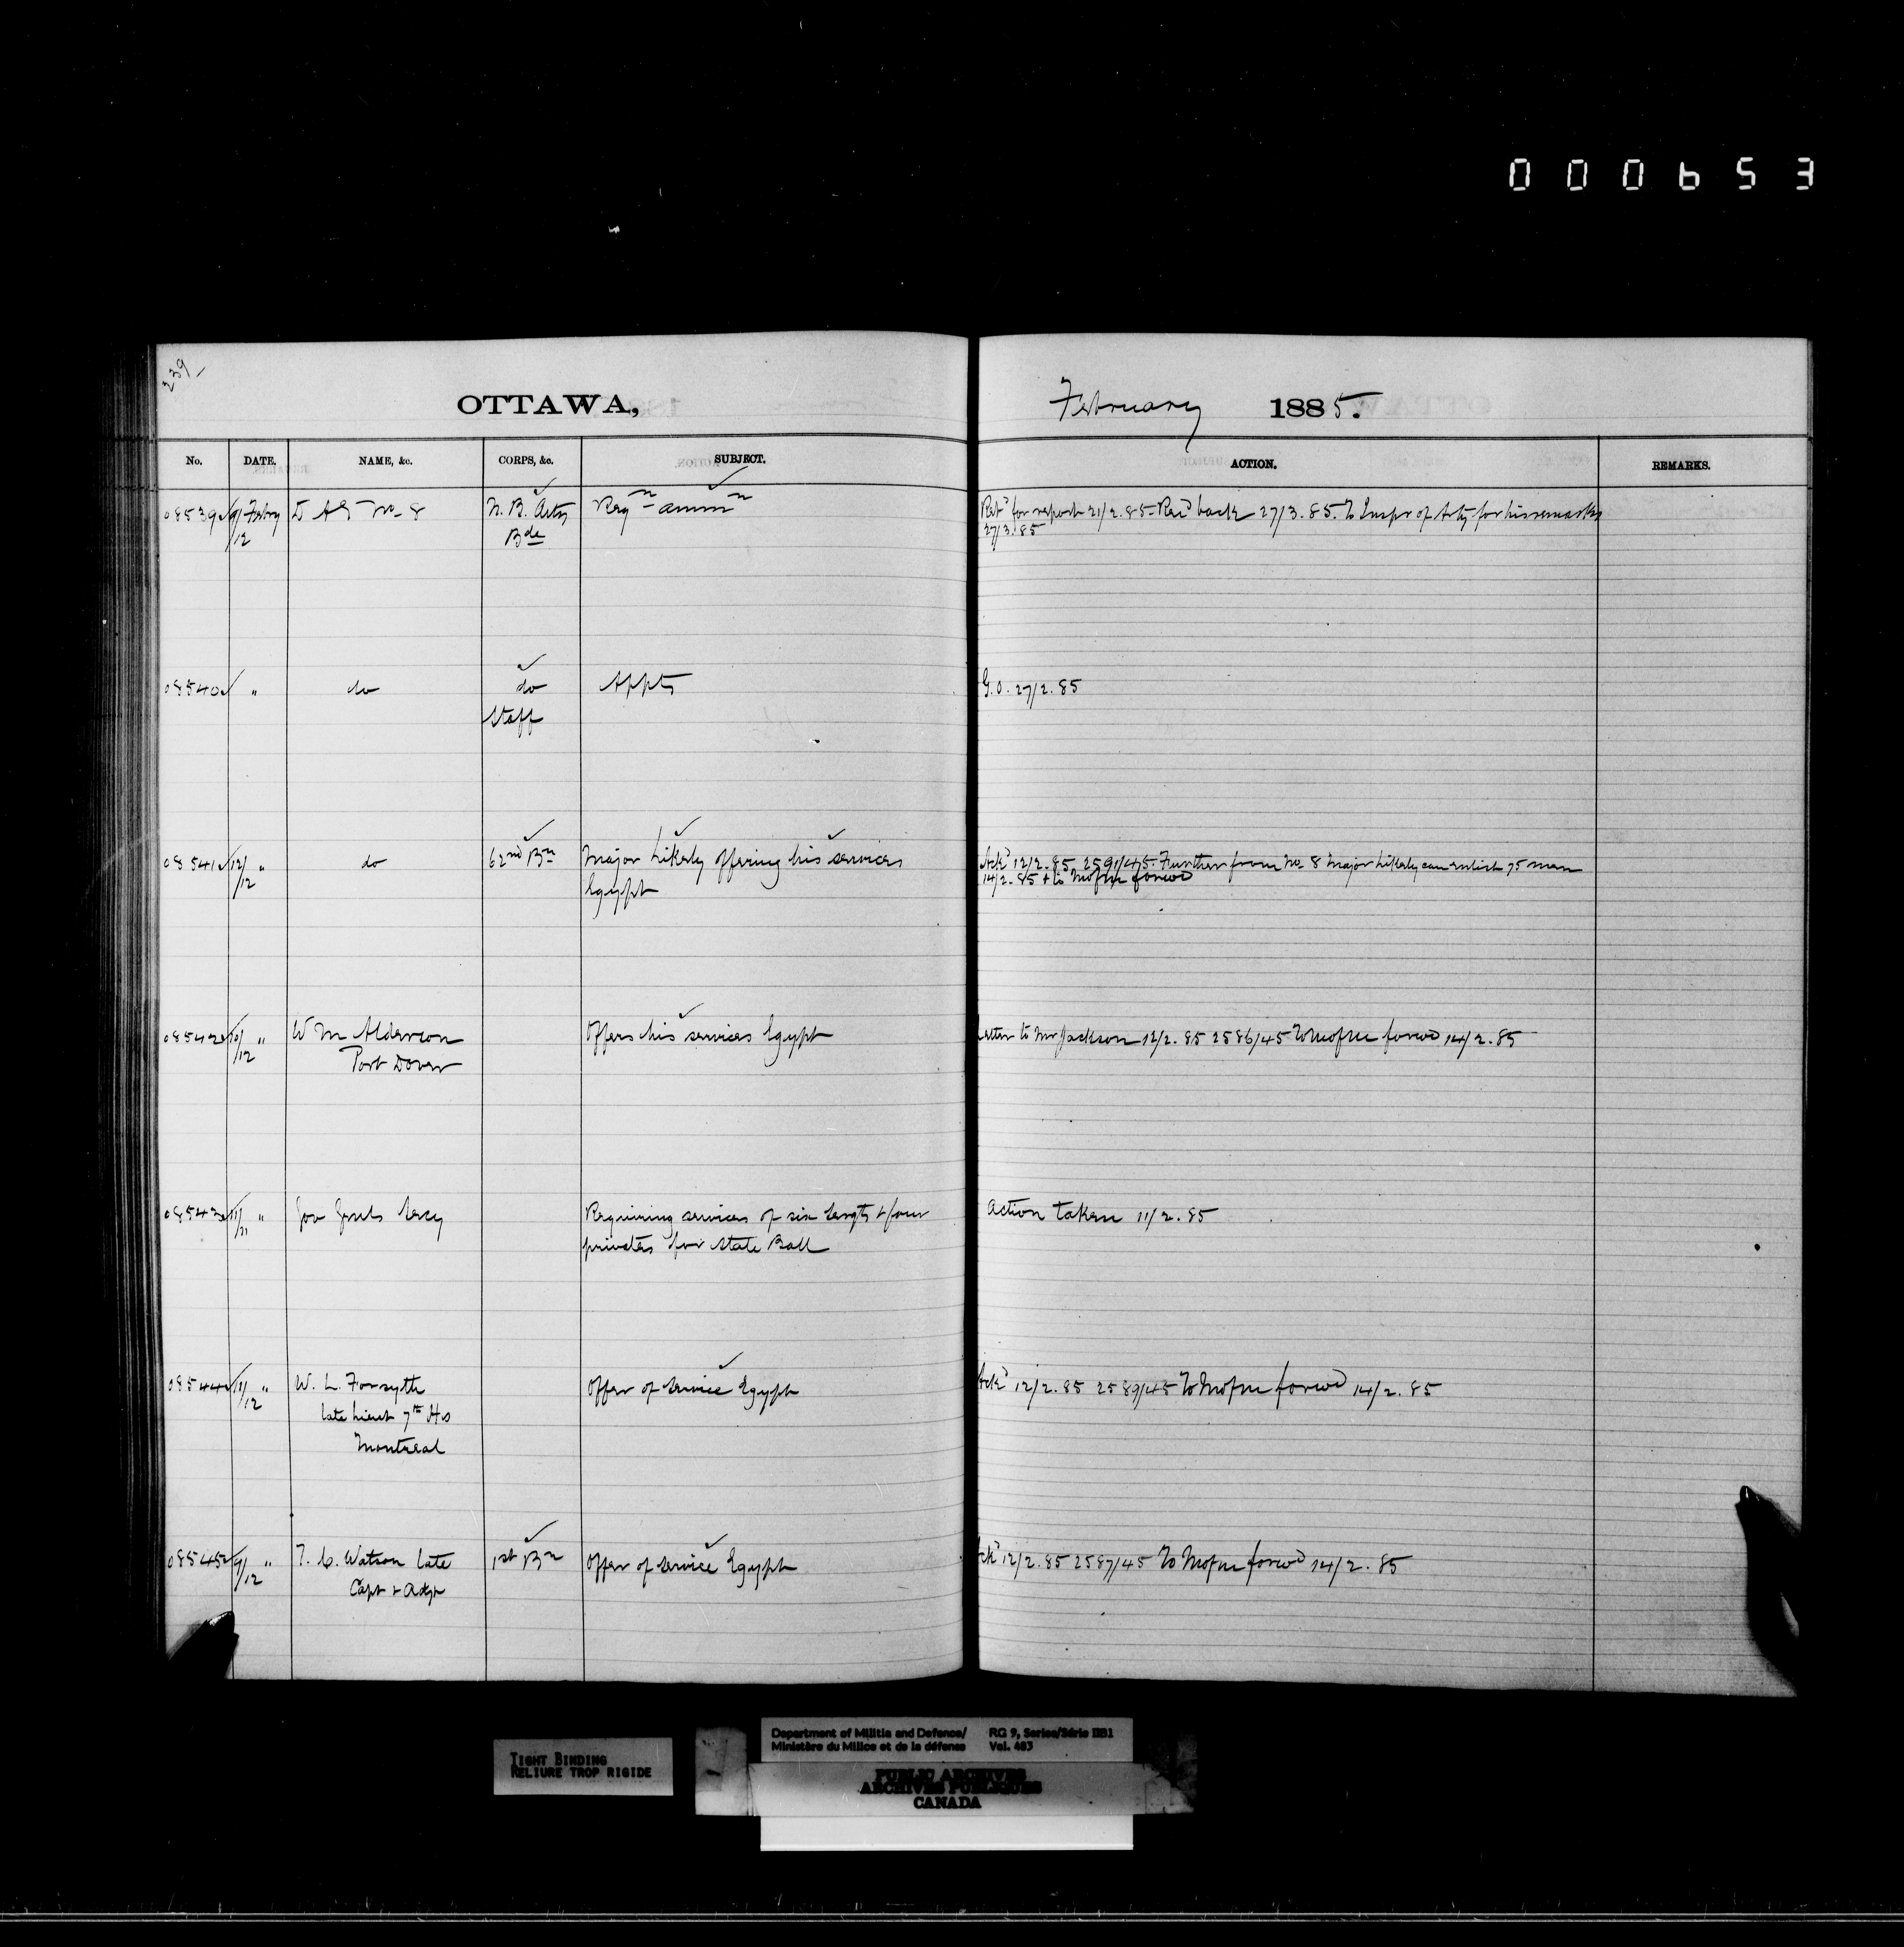 000653
239
OTTAWA,
February 1885.
No. DATE. NAME, &c. CORPS, &c. SUBJECT. ACTION. REMARKS.
08539 9/12 Febry D A G No 8 N. B. Arty Reqn ammn Retd for report 21/2.85. Recd back 27/3.85. To Inspr of Arty for his remarks
Bde 27/3.85
08540 " do do Appts G.O. 27/2.85
Staff
08541 12/12 " do 62nd Bn Major Likely offering his services Ackd 12/2.85 2591/45. Further from No 8 Major Likely can enlist 75 men
Egypt 14/2.85 & to Mofm forwd
08542 10/12 " W M Alderson Offers his services Egypt Letter to Mr Jackson 12/2.85 2586/45 To Mofm forwd 14/2.85
Port Dover
08543 11/11 " Gov Genls Secy Requiring services of six Sergts & four Action taken 11/2.85
privates for State Ball
08544 11/12 " W. L. Forsyth Offer of Service Egypt Ackd 12/2.85 2589/45 To Mofm forwd 14/2.85
late Lieut 7th Hrs
Montreal
08545 9/12 " T. C. Watson late 1st Bn Offer of Service Egypt Ackd 12/2.85 2587/45 To Mofm forwd 14/2.85
Capt & Adjt
TIGHT BINDING
RELIURE TROP RIGIDE
Department of Militia and Defence/ RG 9, Series/Série IIB1
Ministère du Milice et de la défense Vol. 483
PUBLIC ARCHIVES
ARCHIVES PUBLIQUES
CANADA